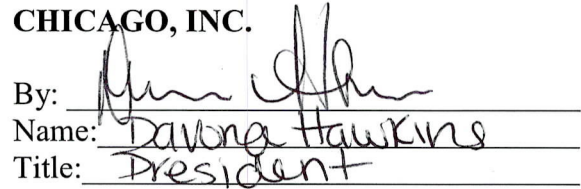 CHICAGO, INC.
By:
Name: Davona Hawkins
Title: President